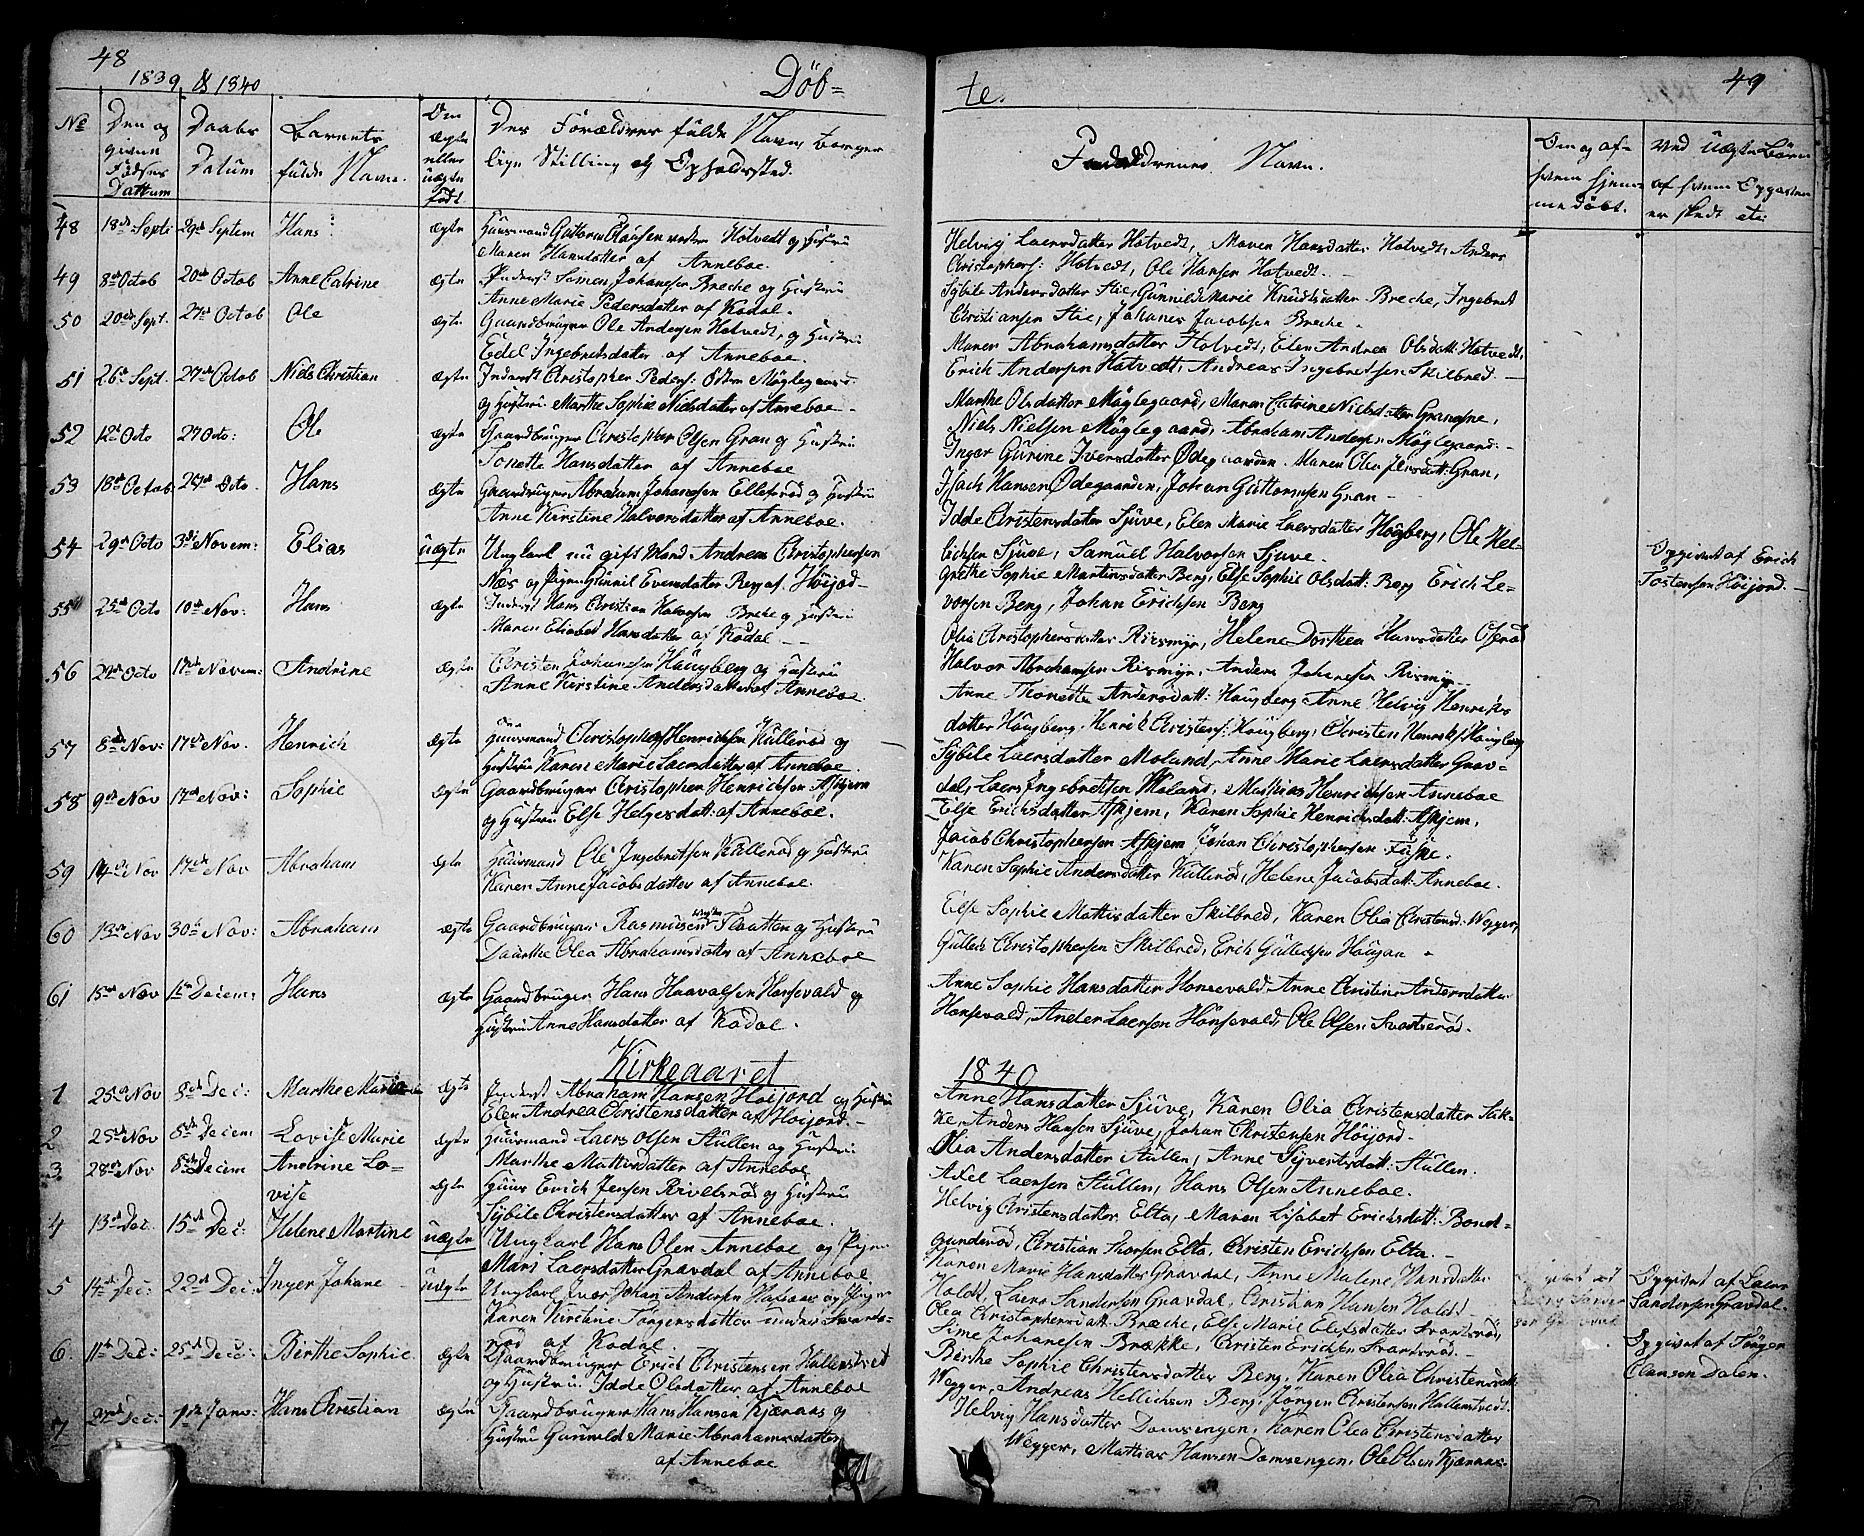 48
1839 & 1840
Döb=
№
Den og
Fødsels
Dattum
Daabs
Datum
Barnets
fulde Navn.
Om
ægte
eller
uægte
født
Des Forældres fulde Navn, borger
lige Stilling og Opholdssted.
48 18de Septr 29de Septem Hans ægte Huusmand Guttorm Clausen vestre Hotvedt og Hustru
Maren Hansdatter af Anneboe.
49 8de Octob 20de Octob Anne Catrine ægte Inderst Simen Johanesen Breche og Hustru
Anne Marie Pedersdatter af Kodal.
50 20de Sept. 27de Octob Ole ægte Gaardbruger Ole Andersen Hotvedt, og Hustru
Edel Ingebretsdatter af Anneboe.
51 26de Sept. 27de Octob Niels Christian ægte Inderst Christopher Peders: østre Møglegaard
og Hustru Marthe Sophie Nielsdatter af Anneboe
52 12de Octo 27 Octo: Ole ægte Gaardbruger Christopher Olsen Gran og Hustru
Tonette Hansdatter af Anneboe
53 18de Octob: 27de Octo Hans ægte Gaardbruger Abraham Johannsen Ellefsrød og Hustru
Anne Kirstine Halvorsdatter af Anneboe.
54 29de Octo 3de Novem: Elias uægte Ungkarl nu gift Mand Andreas Christophersen
Næs og Pigen Gunnil Evensdatter Røe af Höijord
55 25de Octo 10de Nov: Hans ægte Inderst Hans Christian Halvorsen Breche og Hustru
Maren Elisabed Hansdatter af Kodal
56 29de Octo 17de Novem: Andrine ægte Christen Johanesen Haugberg og Hustru
Anne Kirstine Andersdatter af Anneboe
57 8de Nov: 17de Nov. Henrich ægte Huusmand Christopher Henrichsen Kullerød og
Hustru Karen Marie Laersdatter af Anneboe
58 9de Nov 17de Nov: Sophie ægte Gaardbruger Christopher Henrichsen Askjem
og Hustru Else Helgesdatt: af Anneboe.
59 14de Nov 17de Nov Abraham ægte Huusmand Ole Ingebretsen Kullerød og Hustru
Karen Anne Jacobsdatter af Anneboe.
60 13de Nov 30de Nov: Abraham ægte Gaardbruger Rasmusen Flaatten og Hustru
Daarthe Olea Abrahamsdatter af Anneboe
61 15de Nov 1te Decem: Hans ægte Gaardbruger Hans Haavalsen Honsevald og
Hustru Anne Hansdatter af Kodal.
Kirkeaaret
1 25de Nov 8de Dec: Marthe Maria ægte Inderst Abraham Hansen Höijord og Hustru
Elen Andrea Christensdatter af Höijord.
2 25de Nov 8de Decem Lovise Marie ægte Huusmand Laers Olsen Stullen og Hustru
Marthe Mathisdatter af Anneboe
3 28de Nov 8de Decem Andrine Lo-
vise ægte Huus Erich Jensen Rivelsrød og Hustru
Sybile Christensdatter af Anneboe.
4 13de Dec. 15de Dec: Helene Martine uægte Ungkarl Hans Olsen Anneboe og Pigen
Mari Laersdatter Gravdal af Anneboe
5 14de Dec: 22de Dec: Inger Johane uægte Ungkarl Iver Johan Andersen Hasaas og Pigen
Karen Kirstine Jörgensdatter under Svarts-
rød af Kodal.
6 11te Dec: 25de Dec: Birthe Sophie ægte Gaardbruger Erich Christensen Hallenstvet
og Hustru Idde Olsdatter af Anneboe
7 27de Dec: 1te Janv: Hans Christian ægte Gaardbruger Hans Hansen Kjæraas og
Hustru Gunnild Marie Abrahamsdatter
af Anneboe
te.
49
Fadderenes Navn.
Om og af
hvem hjem
me døbt.
Ved Uægte Børn
af hvem Opgaven
er skedt etc:
Helvig Laersdatter Hotvedt, Maren Hansdatter Hotvedt, Anders
Christophers: Hotvedt, Ole Hansen Hotvedt.
Sybile Andersdatter Stie, Gunnild Marie Knudsdatter Breche, Ingebret
Christiansen Stie, Johanes Jacobsen Breche.
Maren Abrahamsdatter Hotvedt, Elen Andrea Olsdatt: Hotvedt,
Erich Andersen Hotvedt, Andreas Ingebretsen Skilbred.
Marthe Olsdatter Møglegaard, Maren Catrine Nielsdatter Grangne,
Niels Nielsen Møglegaard, Abraham Andersen Møglegaard.
Inger Gurine Iversdatter Ødegaarden, Maren Olea Gran,
Isach Hansen Ødegaarden, Johan Guttormsen Gran
Idde Christensdatter Sjuve, Elen Marie Laersdatter Høgberg, Ole Hel-
lichsen Sjuve, Samuel Halvorsen Sjuve
Grethe Sophie Martinsdatter Berg, Else Sophie Olsdatt: Berg Erich Le-
vorsen Berg, Johan Erichsen Berg
Opgivet af Erich
Tostensen Höijord.
Olia Christophersdatter Riismyr, Helene Dorthea Hansdatter Ofsrød
Halvor Abrahamsen Riismyr, Anders Johansen Riismyr
Anne Thonette Andersdatt: Haugberg Anne Helvig Henrichs
datter Haugberg, Henrik Christens: Haugberg, Christen Henriks: Haugberg
Sybile Laersdatter Moland, Anne Marie Laersdatter Grav-
dal, Laers Ingebretsen Moland, Mathias Henrichsen Anneboe
Else Erichsdatter Askjem, Karen Sophie Henrichsdatt: Askjem,
Jacob Christophersen Askjem Johan Christophersen Fuske.
Karen Sophie Andersdatter Kullerød, Helene Jacobsdatt: Anneboe.
Else Sophie Mathisdatter Skilbred, Karen Olia Christensd: Wegger,
Gullich Christophersen Skilbred, Erich Gullichsen Haugan
Anne Sophie Hansdatter Honsevald, Anne Christine Andersdatter
Honsevald, Anders Laersen Honsevald, Ole Olsen Svartsrød.
1840
Anne Hansdatter Sjuve, Karen Olia Christensdatter Suk-
ke, Anders Hansen Sjuve, Johan Christensen Höijord
Olia Andersdatter Stullen, Anne Syvertsdatt: Stullen.
Axel Laersen Stullen, Hans Olsen Anneboe.
Helvig Christensdatter Elta, Maren Lisabet Erichsdatt: Bond-
gunderød, Christian Thorsen Elta, Christen Erichsen Elta.
Karen Marie Hansdatter Gravdal, Anne Malene Hansdatter
Holdt, Laers Sandersen Gravdal, Christian Hansen Holdt
Opgivet af Laers
Sandersen Gravdal.
Olea Christophersdatt: Breche, Else Marie Elefsdatter Svartsrød,
Sime Johanesen Brække, Christen Erichsen Svartsrød.
Opgivet af Jörgen
Clausen Dalen.
Birthe Sophie Christensdatter Berg, Karen Olia Christensdatt
Wegger, Andreas Hellichsen Berg, Jörgen Christensen Hallenstvedt.
Helvig Hansdatter Domsengen, Karen Olea Christensdatter
Wegger, Mathias Hansen Domsengen, Ole Olsen Kjæraas.